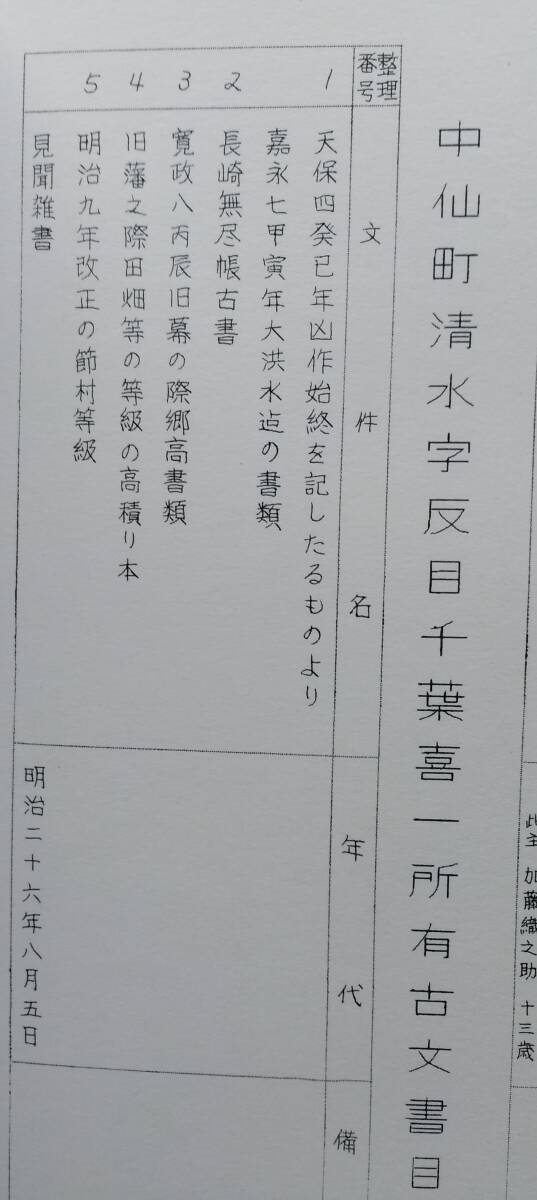 此主 加藤織之助 十三歳
中仙町清水字反目千葉喜一所有古文書目
整理番号 文件名 年代 備
1 天保四癸巳年凶作始終を記したるものより
嘉永七甲寅年大洪水迄の書類
2 長崎無尽帳古書
3 寛政八丙辰旧幕の際郷高書類
4 旧藩之際田畑等の等級の高積り本
5 明治九年改正の節村等級
見聞雑書 明治二十六年八月五日